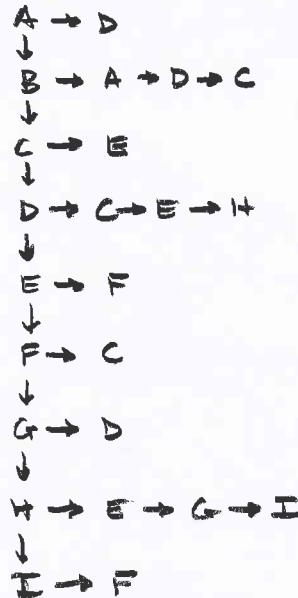 A → D
↓
B → A → D → C
↓
C → E
↓
D → C → E → H
↓
E → F
↓
F → C
↓
G → D
↓
H → E → G → I
↓
I → F